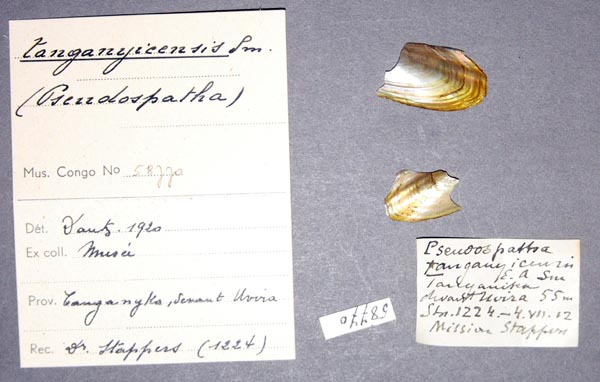 tanganyicensis Sm.
(Pseudospatha)
Mus. Congo No 58770
Dét. Dautz. 1920
Ex coll. Musée
Prov. Tanganyka, devant Uvira
Rec. Dr. Stappers (1224)
Pseudospatha
tanganyicensis
E. A. Sm
Tanganika
devant Uvira 55m
Stn. 1224. - 4.VII.12
Mission Stappers
58770